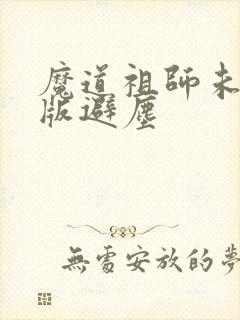 魔道祖師未
版避塵
無處安放的夢